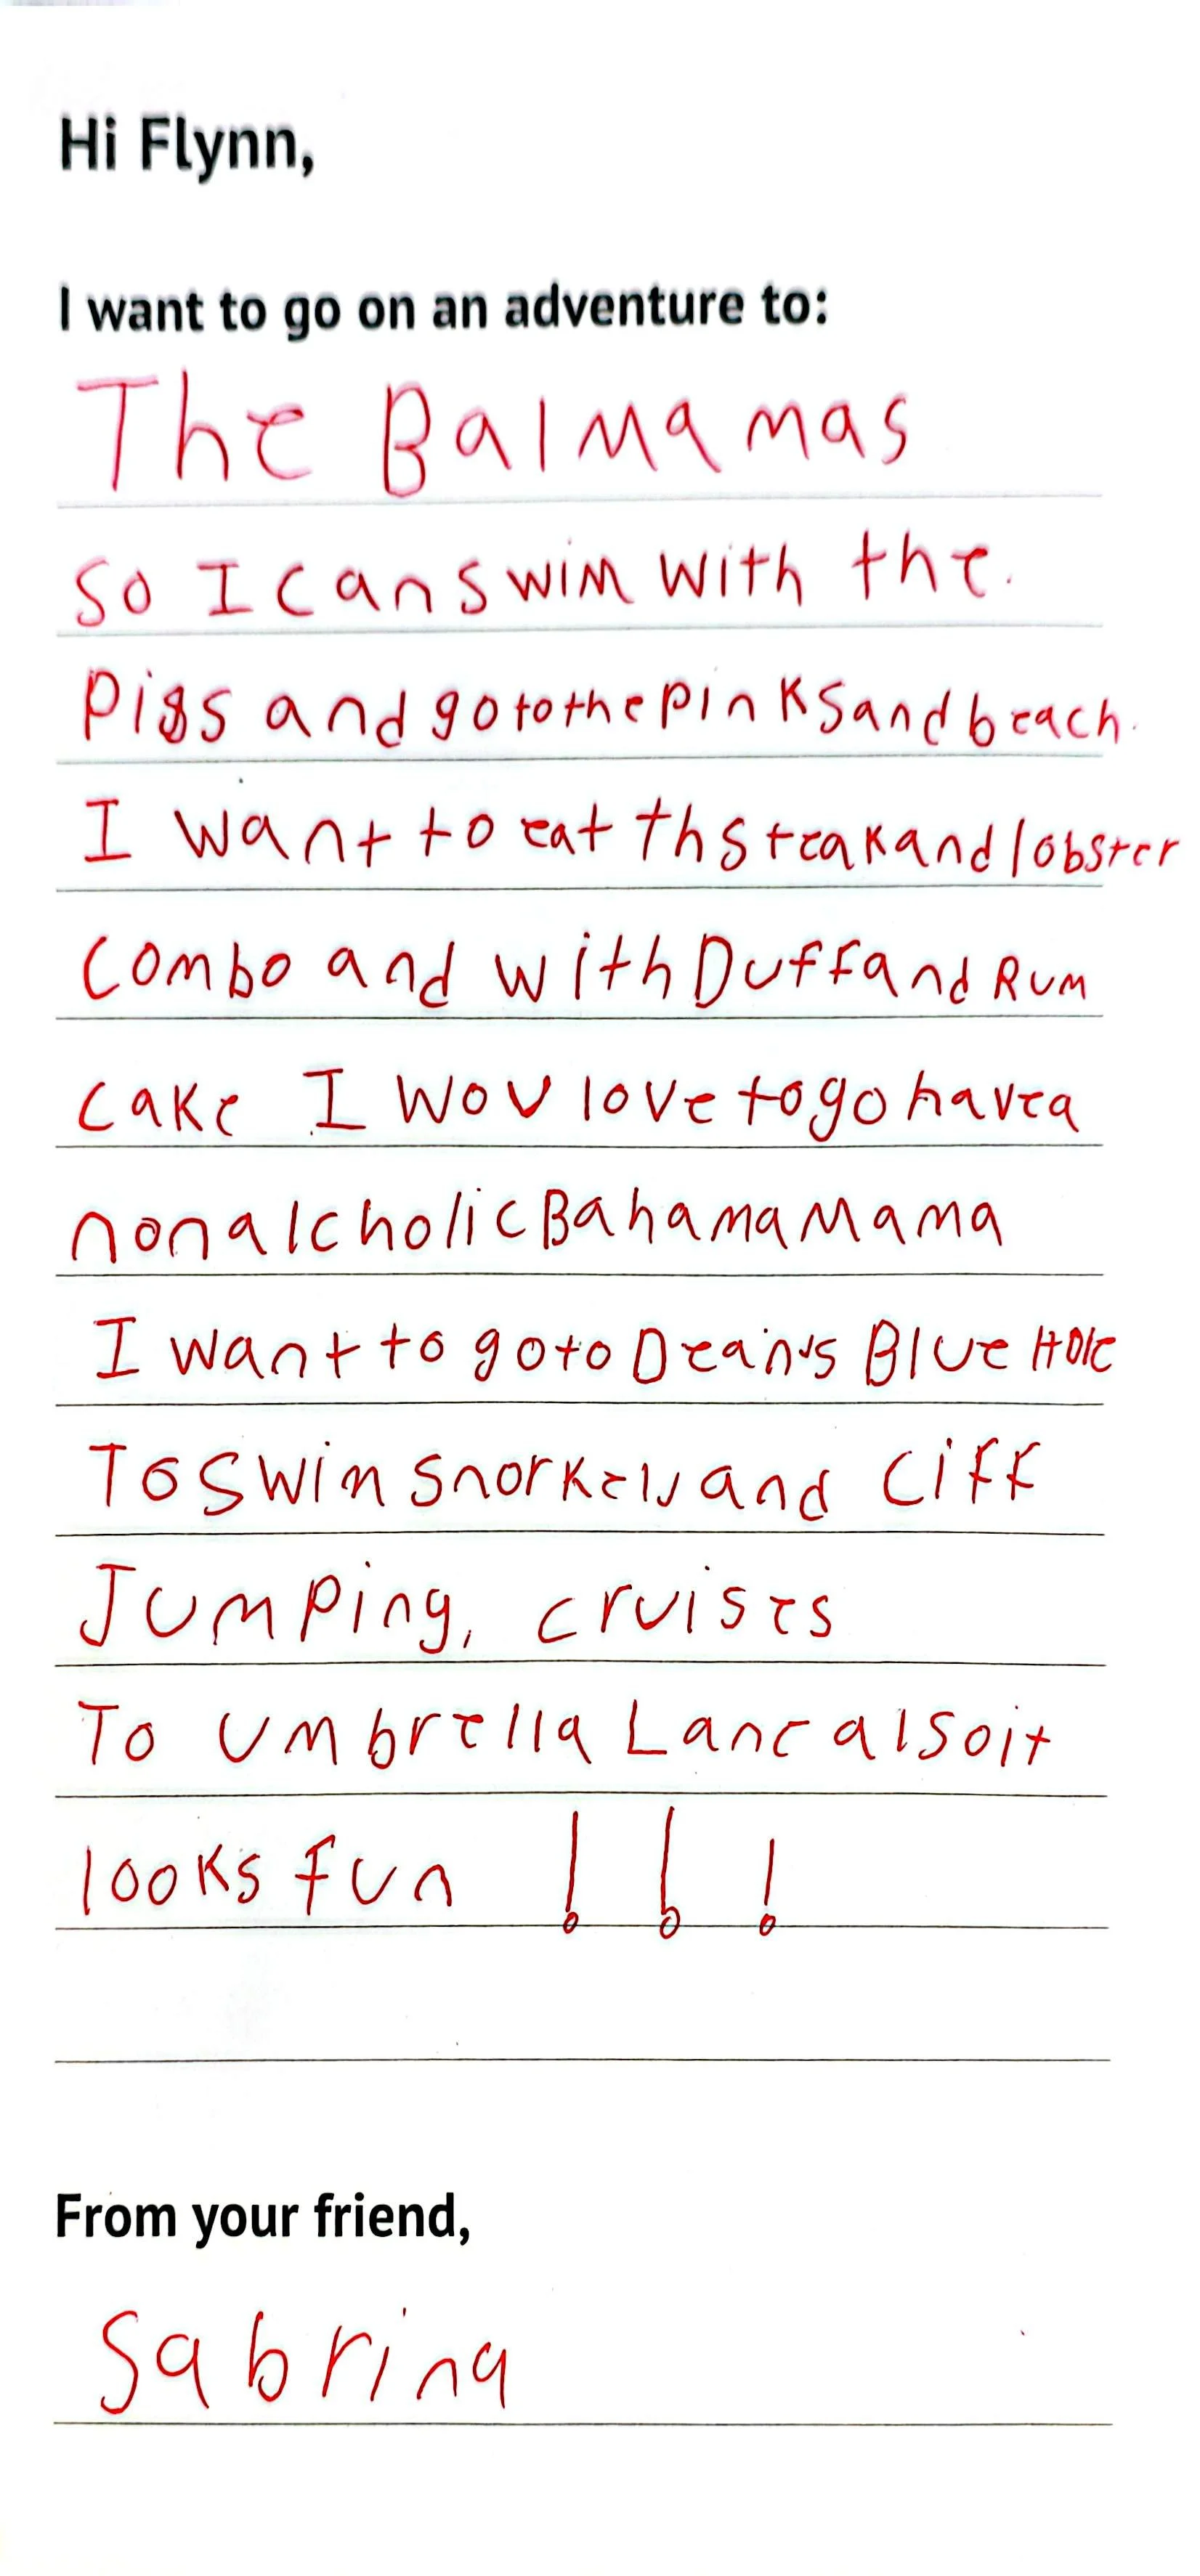 Hi Flynn,
I want to go on an adventure to:
The Balmamas
so I can swim with the.
Pigs and go to the pink sand beach.
I want to eat th steak and lobster
Combo and with Duff and Rum
cake I wou love to go have a
non alcholic Bahama Mama
I want to go to Dean's Blue Hole
To swim snorkels and Ciff
Jumping, cruises
To Umbrella Lane also it
looks fun ! ! !
From your friend,
Sabrina